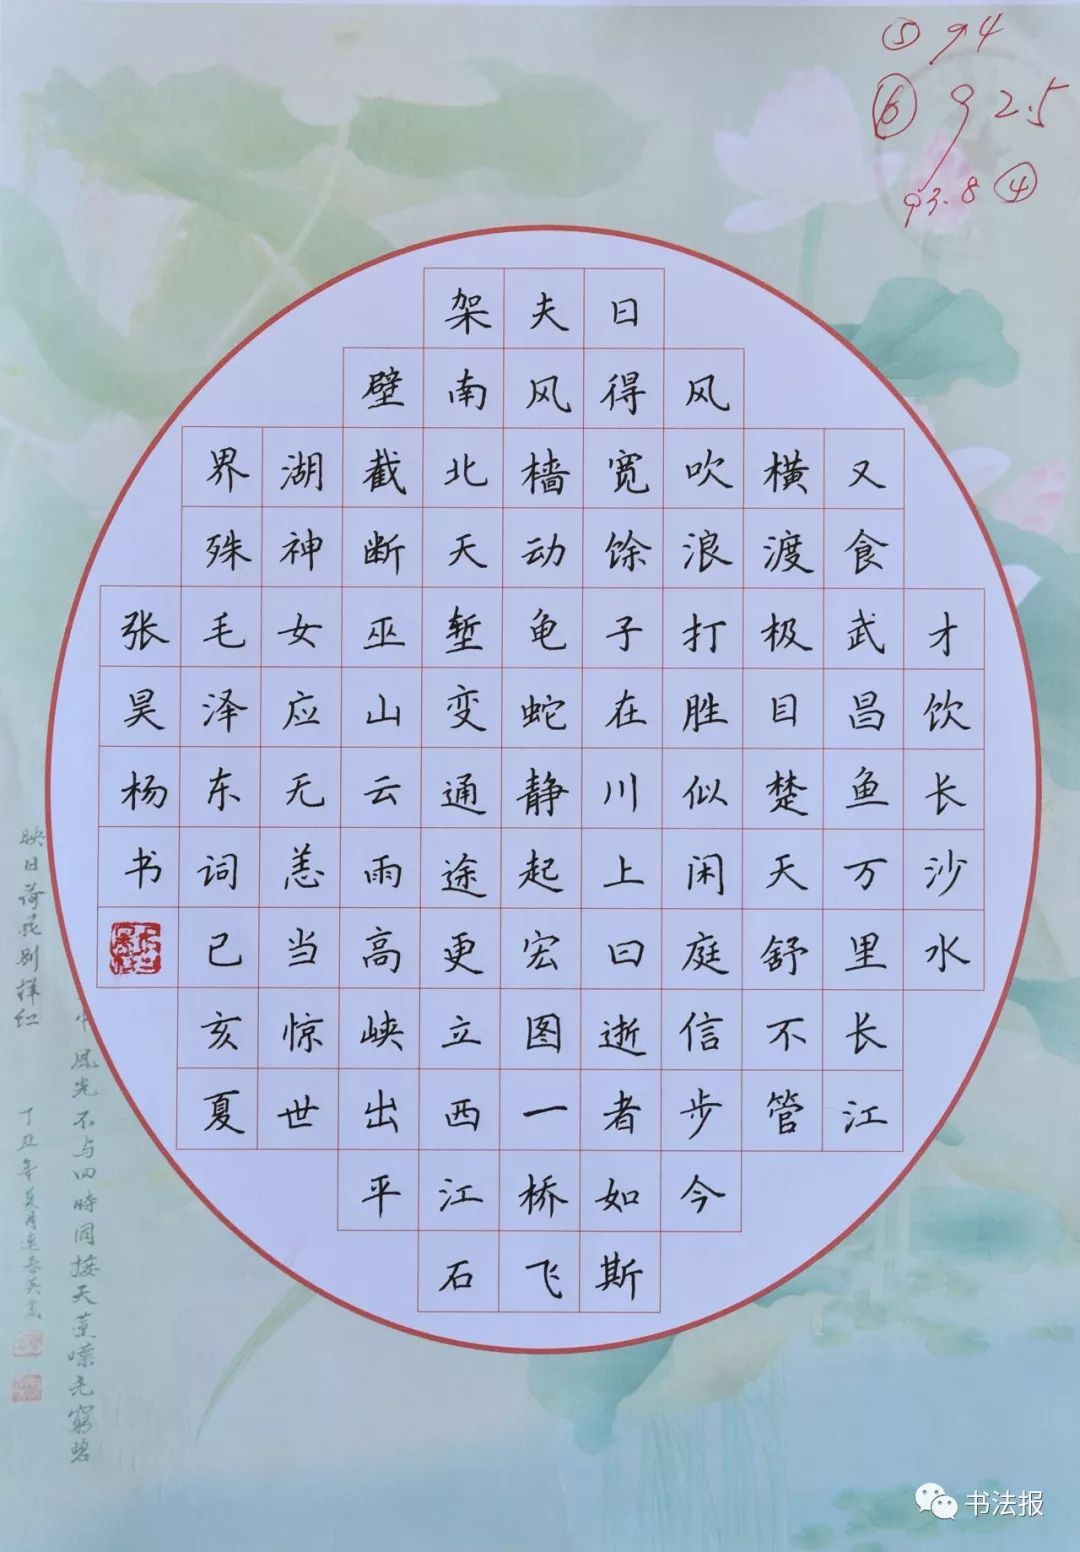 ⑤ 94
⑥ 92.5
93.8 ④
才饮长沙水
又食武昌鱼万里长江
横渡极目楚天舒不管
风吹浪打胜似闲庭信步今
日得宽馀子在川上曰逝者如斯
夫风樯动龟蛇静起宏图一桥飞
架南北天堑变通途更立西江石
壁截断巫山云雨高峡出平
湖神女应无恙当惊世
界殊毛泽东词已亥夏
张昊杨书
中風光不与四時同接天蓮葉无窮碧
映日荷花别样红 丁丑年
书法报